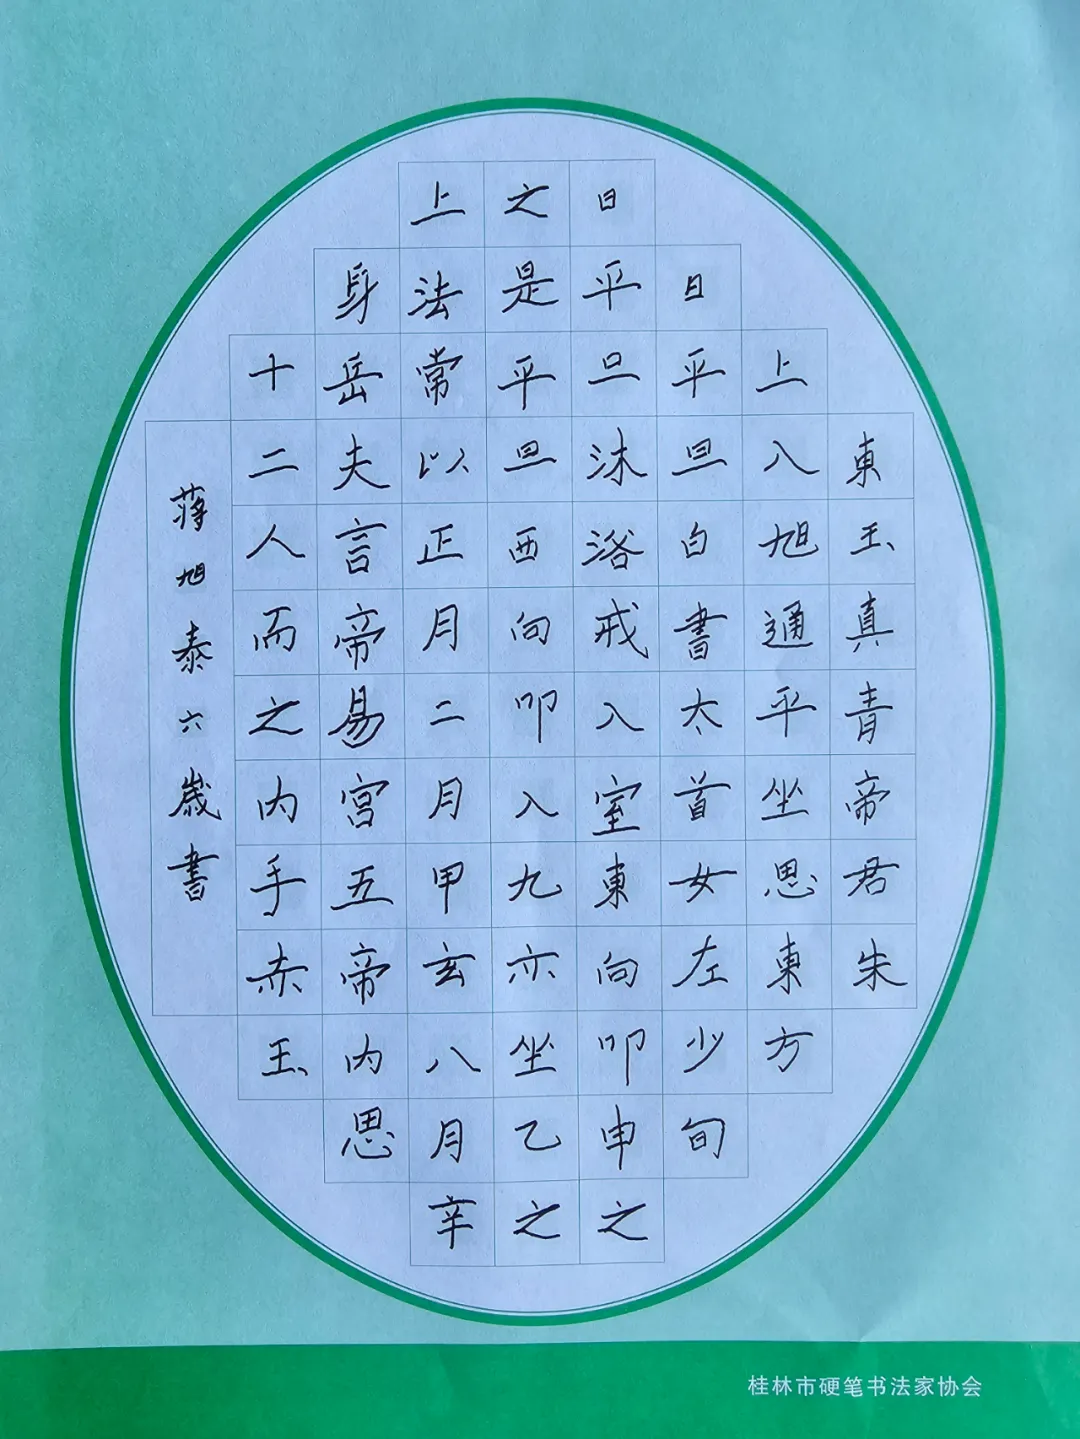 東玉真青帝君朱
上入旭通平坐思東方
日平旦白書太首女左少旬
日平旦沐浴戒入室東向叩申之
之是平旦西向叩入九亦坐乙之
上法常以正月二月甲玄八月辛
身岳夫言帝易宫五帝内思
十二人而之内手赤玉
蒋旭泰六歲書
桂林市硬笔书法家协会